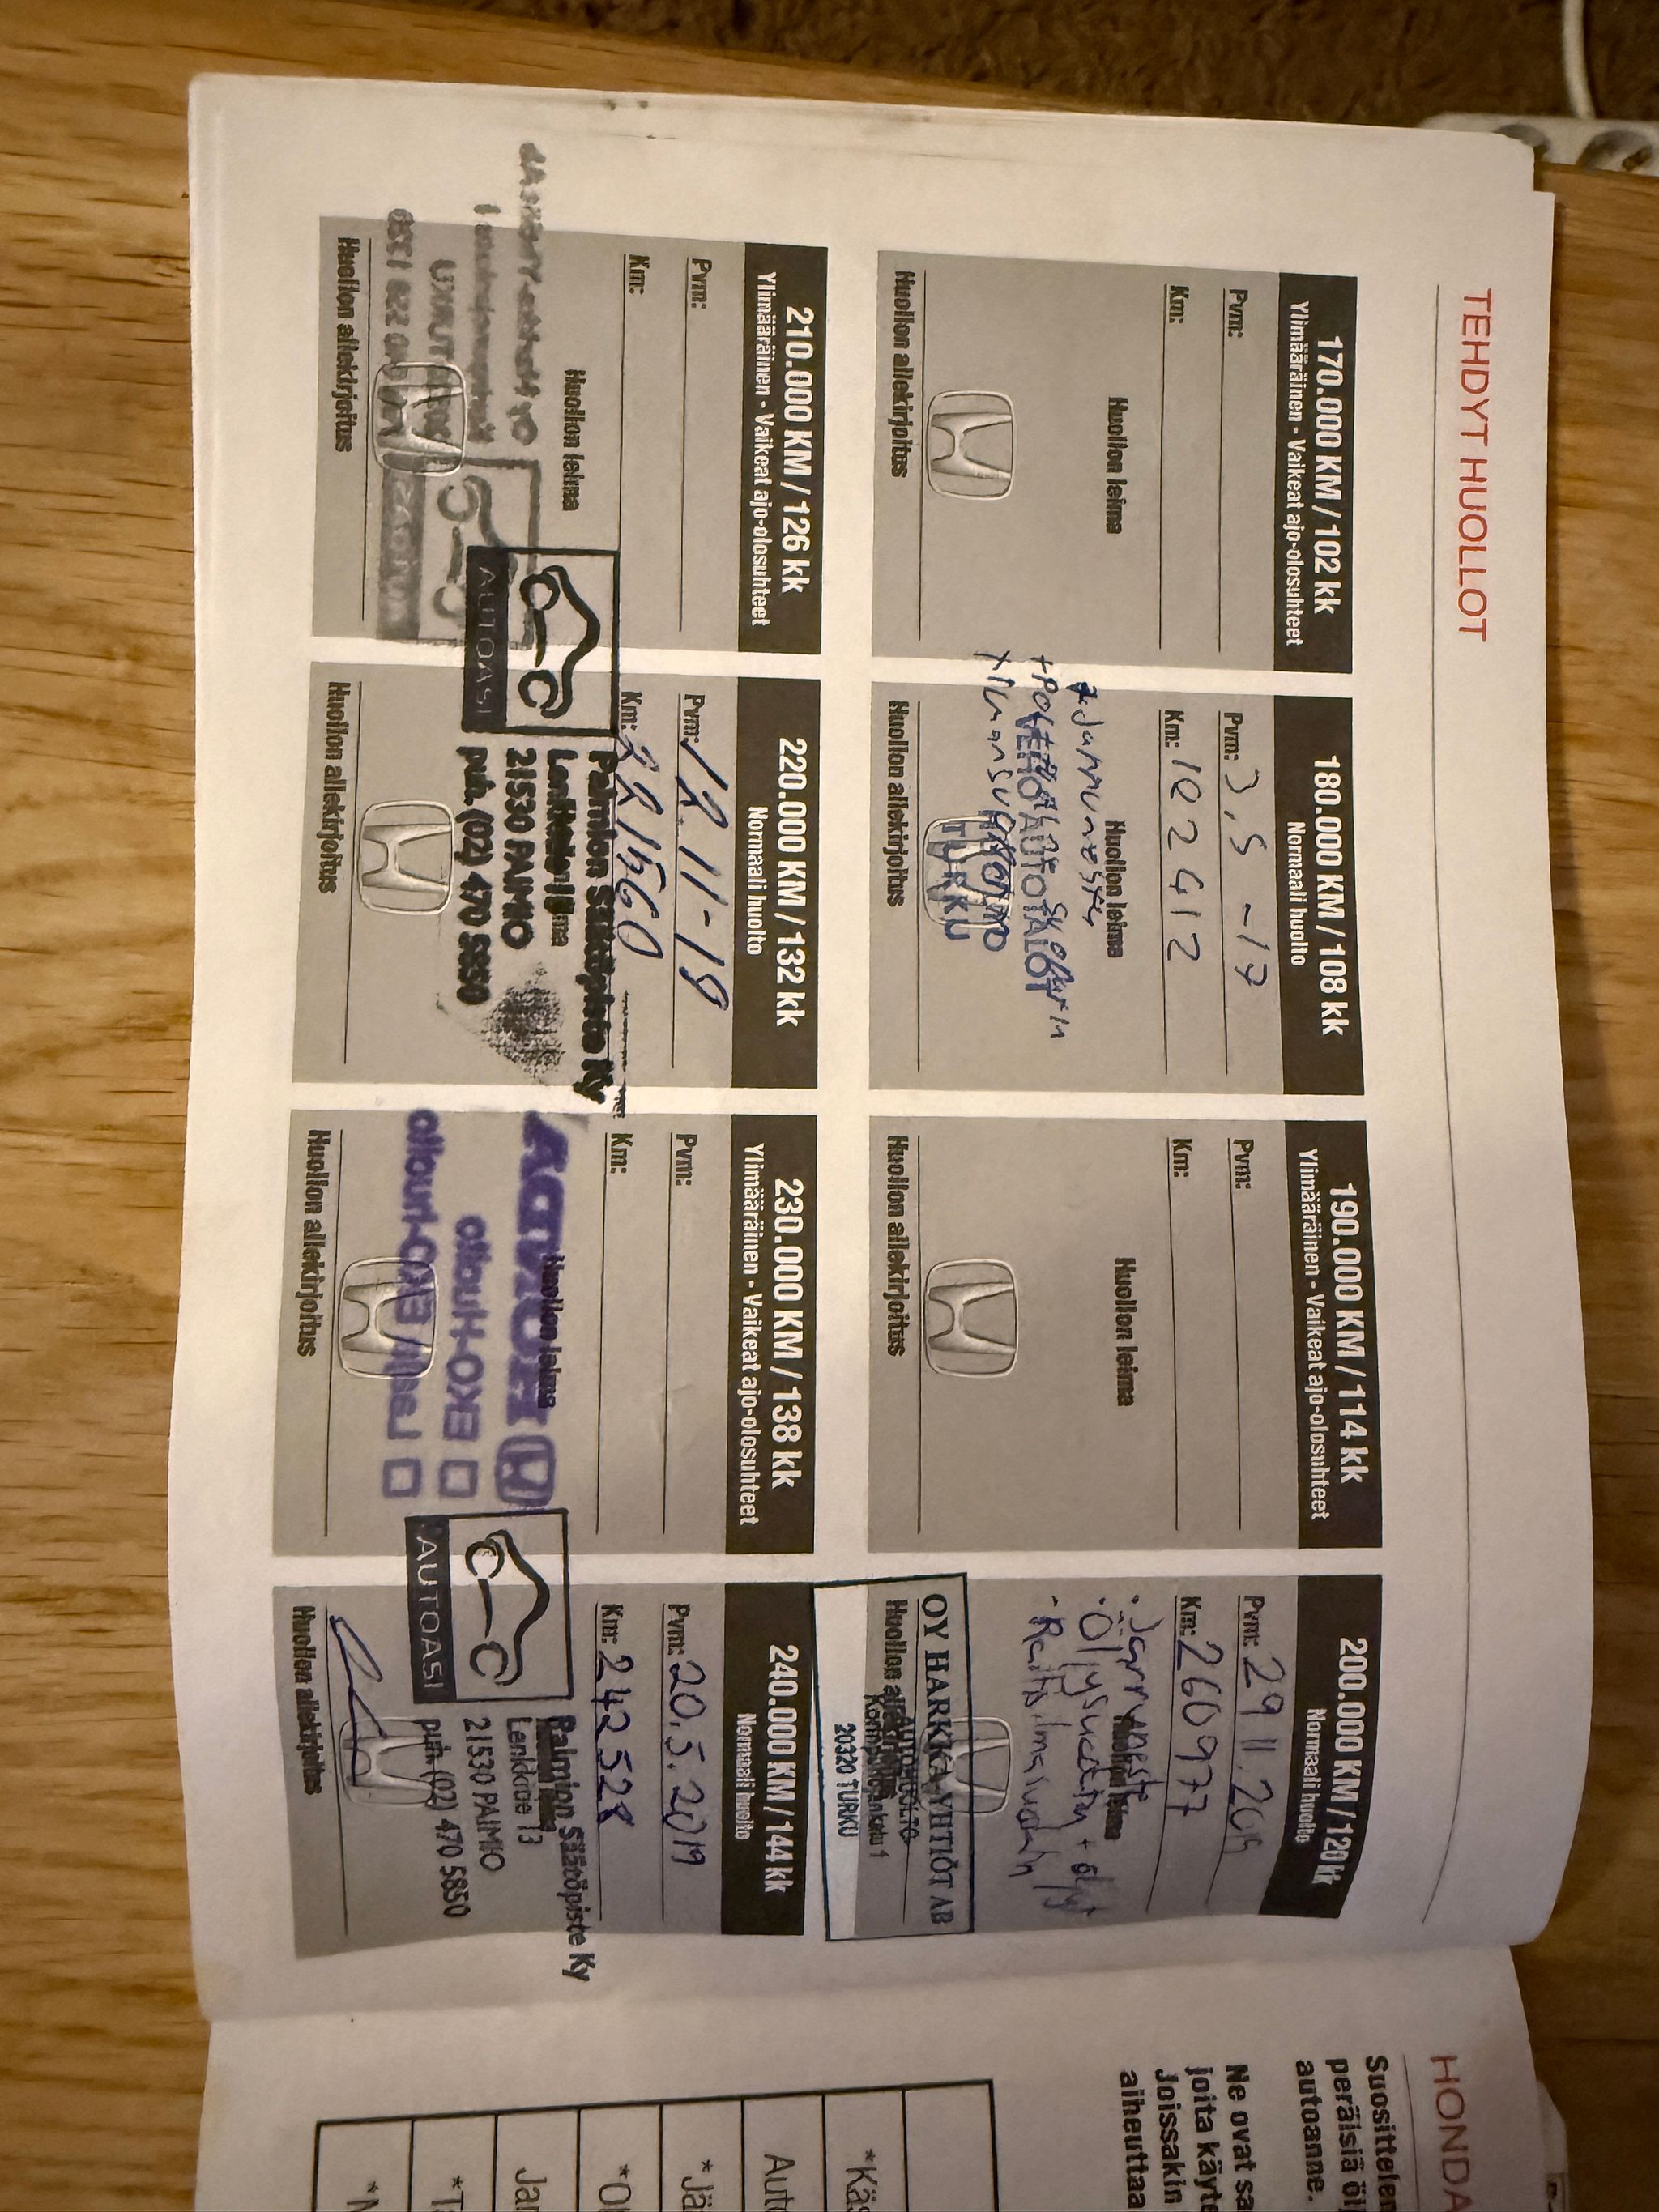 TEHDYT HUOLLOT
170.000 KM / 102 kk
Ylimääräinen - Vaikeat ajo-olosuhteet
Pvm:
Km:
Huollon leima
Huollon allekirjoitus
180.000 KM / 108 kk
Normaali huolto
Pvm: 3.5 -17
Km: 182412
Huollon leima
+Jarruneste
VEHO AUTOTALOT
TURKU
Huollon allekirjoitus
190.000 KM / 114 kk
Ylimääräinen - Vaikeat ajo-olosuhteet
Pvm:
Km:
Huollon leima
Huollon allekirjoitus
200.000 KM / 120 kk
Normaali huolto
Pvm: 29.11.2019
Km: 260977
Huollon leima
• Jarruneste
• Öljysuodatin + öljyt
- Raitisilmasuodatin
OY HARKKA-YHTIÖT AB
AUTOHUOLTO
20320 TURKU
Huollon allekirjoitus
210.000 KM / 126 kk
Ylimääräinen - Vaikeat ajo-olosuhteet
Pvm:
Km:
Huollon leima
Huollon allekirjoitus
220.000 KM / 132 kk
Normaali huolto
Pvm: 12.11-18
Km: 221560
Huollon leima
AUTOASI
Paimion Säätöpiste Ky
21530 PAIMIO
puh. (02) 470 5850
Huollon allekirjoitus
230.000 KM / 138 kk
Ylimääräinen - Vaikeat ajo-olosuhteet
Pvm:
Km:
Huollon leima
Huollon allekirjoitus
240.000 KM / 144 kk
Normaali huolto
Pvm: 20.5.2019
Km: 242528
AUTOASI
Paimion Säätöpiste Ky
Lenkkitie 13
21530 PAIMIO
puh. (02) 470 5850
Huollon allekirjoitus
HONDA
Suosittelem
peräisiä öljy
autoanne.
Ne ovat sa
joita käyte
Joissakin
aiheuttaa
*Käs
Auto
*Jä
*Ol
Jar
*T